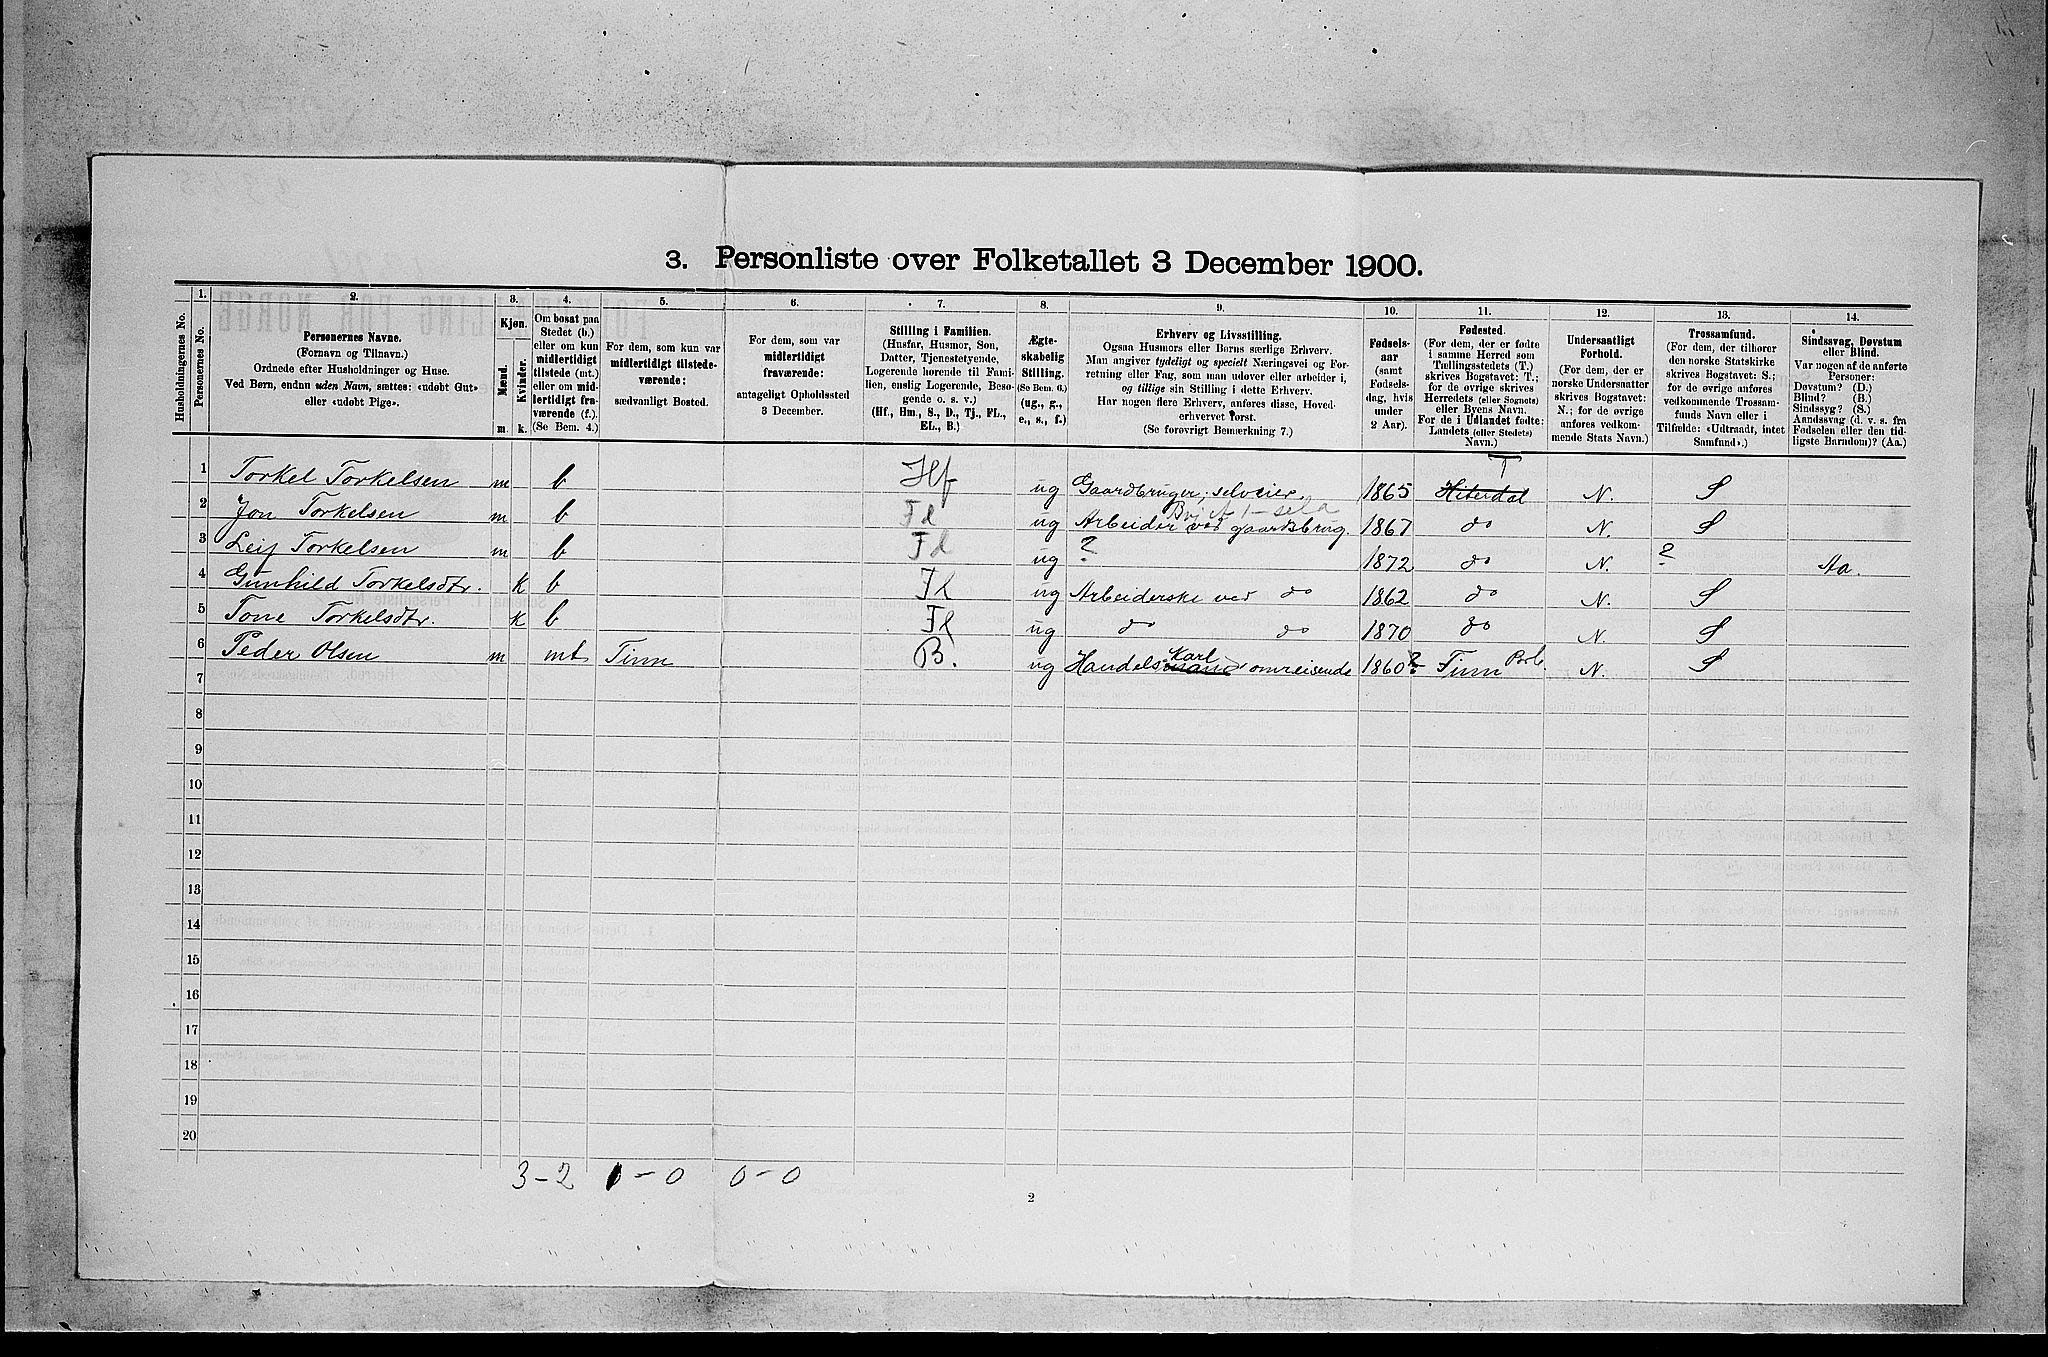 3. Personliste over Folketallet 3 December 1900.
Husholdningernes No.
1.
Personernes No.
2.
Personernes Navne.
(Fornavn og Tilnavn.)
Ordnede efter Husholdninger og Huse.
Ved Børn, endnu uden Navn, sættes: «udøbt Gut»
eller «udøbt Pige».
3.
Kjøn.
Mænd.
Kvinder.
m. k.
4.
Om bosat paa
Stedet (b.)
eller om kun
midlertidigt
tilstede (mt.)
eller om mid-
lertidigt fra-
værende (f.).
(Se Bem. 4.)
5.
For dem, som kun var
midlertidigt tilstede-
værende:
sædvanligt Bosted.
6.
For dem, som var
midlertidigt
fraværende:
antageligt Opholdssted
3 December.
7.
Stilling i Familien.
(Husfar, Husmor, Søn,
Datter, Tjenestetyende,
Logerende hørende til Fami-
lien, enslig Logerende, Besø-
gende o. s. v.)
(Hf., Hm., S., D., Tj., FL.,
EL., B.)
8.
Ægte-
skabelig
Stilling.
(Se Bem. 6.)
(ug., g.,
e., s., f.)
9.
Erhverv og Livsstilling.
Ogsaa Husmors eller Børns særlige Erhverv.
Man angiver tydeligt og specielt Næringsvei og For-
retning eller Fag, som man udover eller arbeider i,
og tillige sin Stilling i dette Erhverv.
Har nogen flere Erhverv, anføres disse, Hoved-
erhvervet først.
(Se forøvrigt Bemærkning 7.)
10.
Fødsels-
aar
(samt
Fødsels-
dag, hvis
under
2 Aar).
11.
Fødested.
(For dem, der er fødte
i samme Herred som
Tællingsstedets (T.)
skrives Bogstavet: T.;
for de øvrige skrives
Herredets (eller Sognets)
eller Byens Navn.
For de i Udlandet fødte:
Landets (eller Stedets)
Navn.)
12.
Undersaatligt
Forhold.
(For dem, der er
norske Undersaatter
skrives Bogstavet:
N.; for de øvrige
anføres vedkom-
mende Stats Navn.)
13.
Trossamfund.
(For dem, der tilhører
den norske Statskirke
skrives Bogstavet: S.;
for de øvrige anføres
vedkommende Trossam-
funds Navn eller i
Tilfælde: «Udtraadt, intet
Samfund».)
14.
Sindssvag, Døvstum
eller Blind.
Var nogen af de anførte
Personer:
Døvstum? (D.)
Blind? (B.)
Sindssyg? (S.)
Aandssvag (d. v. s. fra
Fødselen eller den tid-
ligste Barndom)? (Aa.)
1 Torkel Torkelsen m b Hf ug Gaardbruger, selveier. 1865 Hiterdal T N. S
2 Jon Torkelsen m b Fl ug Arbeider ved gaardsbrug. 1867 do N. S
3 Leif Torkelsen m b Fl ug ? 1872 do N. ? Aa.
4 Gunhild Torkelsdtr. k b Fl ug Arbeiderske ved do 1862 do N. S
5 Tone Torkelsdtr. k b Fl ug do do 1870 do N. S
6 Peder Olsen m mt Tinn B. ug Handelsmand Karl omreisende 1860? Tinn N. S
7
8
9
10
11
12
13
14
15
16
17
18
19
20
3-2 1-0 0-0
2